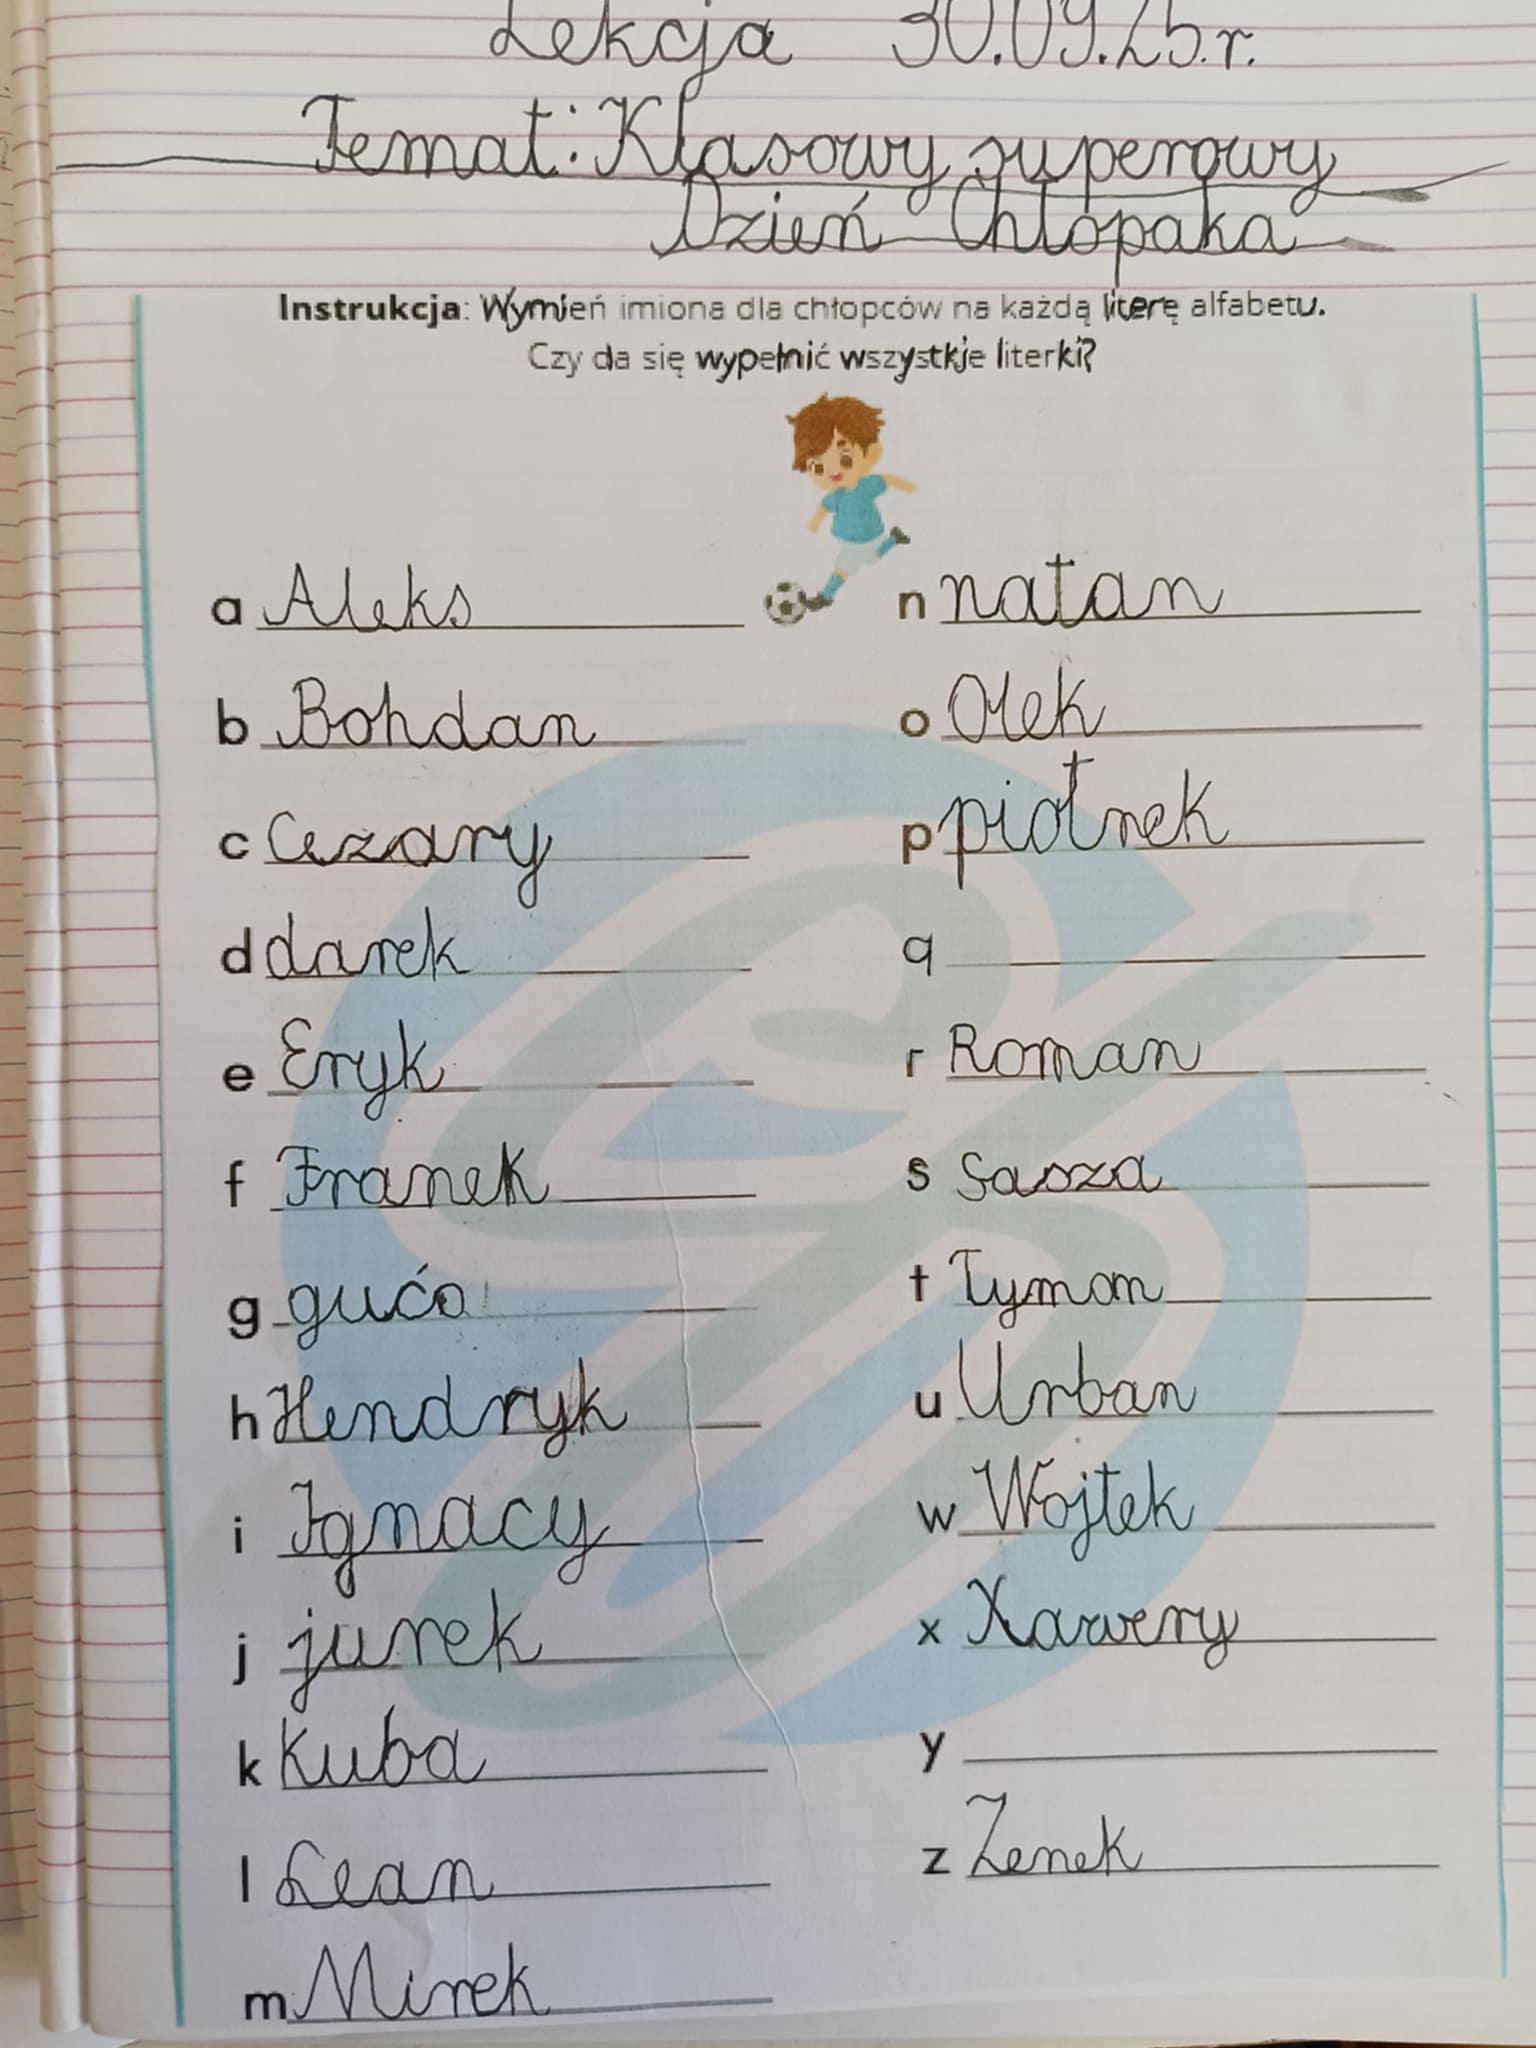 Lekcja 30.09.25.r.
Temat: Klasowy superowy
Dzień Chłopaka
Instrukcja: Wymień imiona dla chłopców na każdą literę alfabetu.
Czy da się wypełnić wszystkie literki?
a Aleks
b Bohdan
c Cezary
d darek
e Eryk
f Franek
g gućo
h Hendryk
i Ignacy
j jurek
k Kuba
l Lean
m Mirek
n natan
o Olek
p piotrek
q
r Roman
s Sasza
t Tymon
u Urban
w Wojtek
x Xawery
y
z Zenek